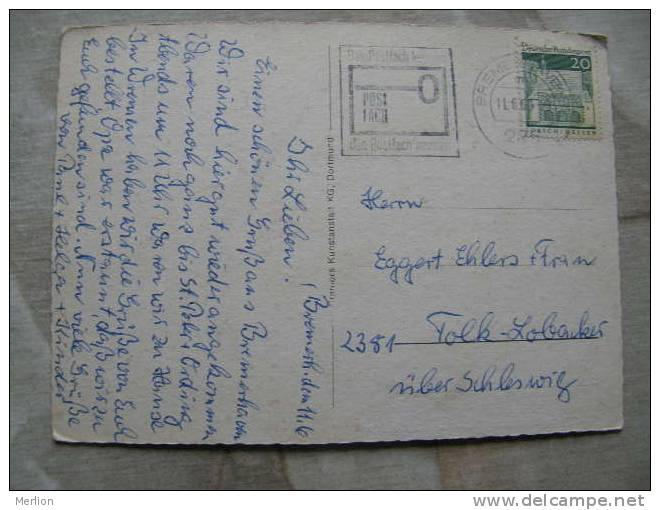 Bremerh. den 11.6
Ihr Lieben!
Einen schönen Gruß aus Bremerhaven
Wir sind hier gut wieder angekommen
Waren noch ganz bis St. Peter Ording
Abends um 11 Uhr waren wir zu Hause
In Wremen haben wir die Grüße von Euch
bestellt Opa war erstaunt, daß wir zu
Euch gefunden sind. Nun viele Grüße
von + Kinder
Kunstanstalt KG, Dortmund
Das Postfach
POST
FACH
Das Postfach
BREME
11.6.
Deutsche Bundespost
20
LORSCH/HESSEN
Herrn
Eggert Ehlers + Frau
2381 Tolk-Lobacker
über Schleswig
Merlion
delcampe.net